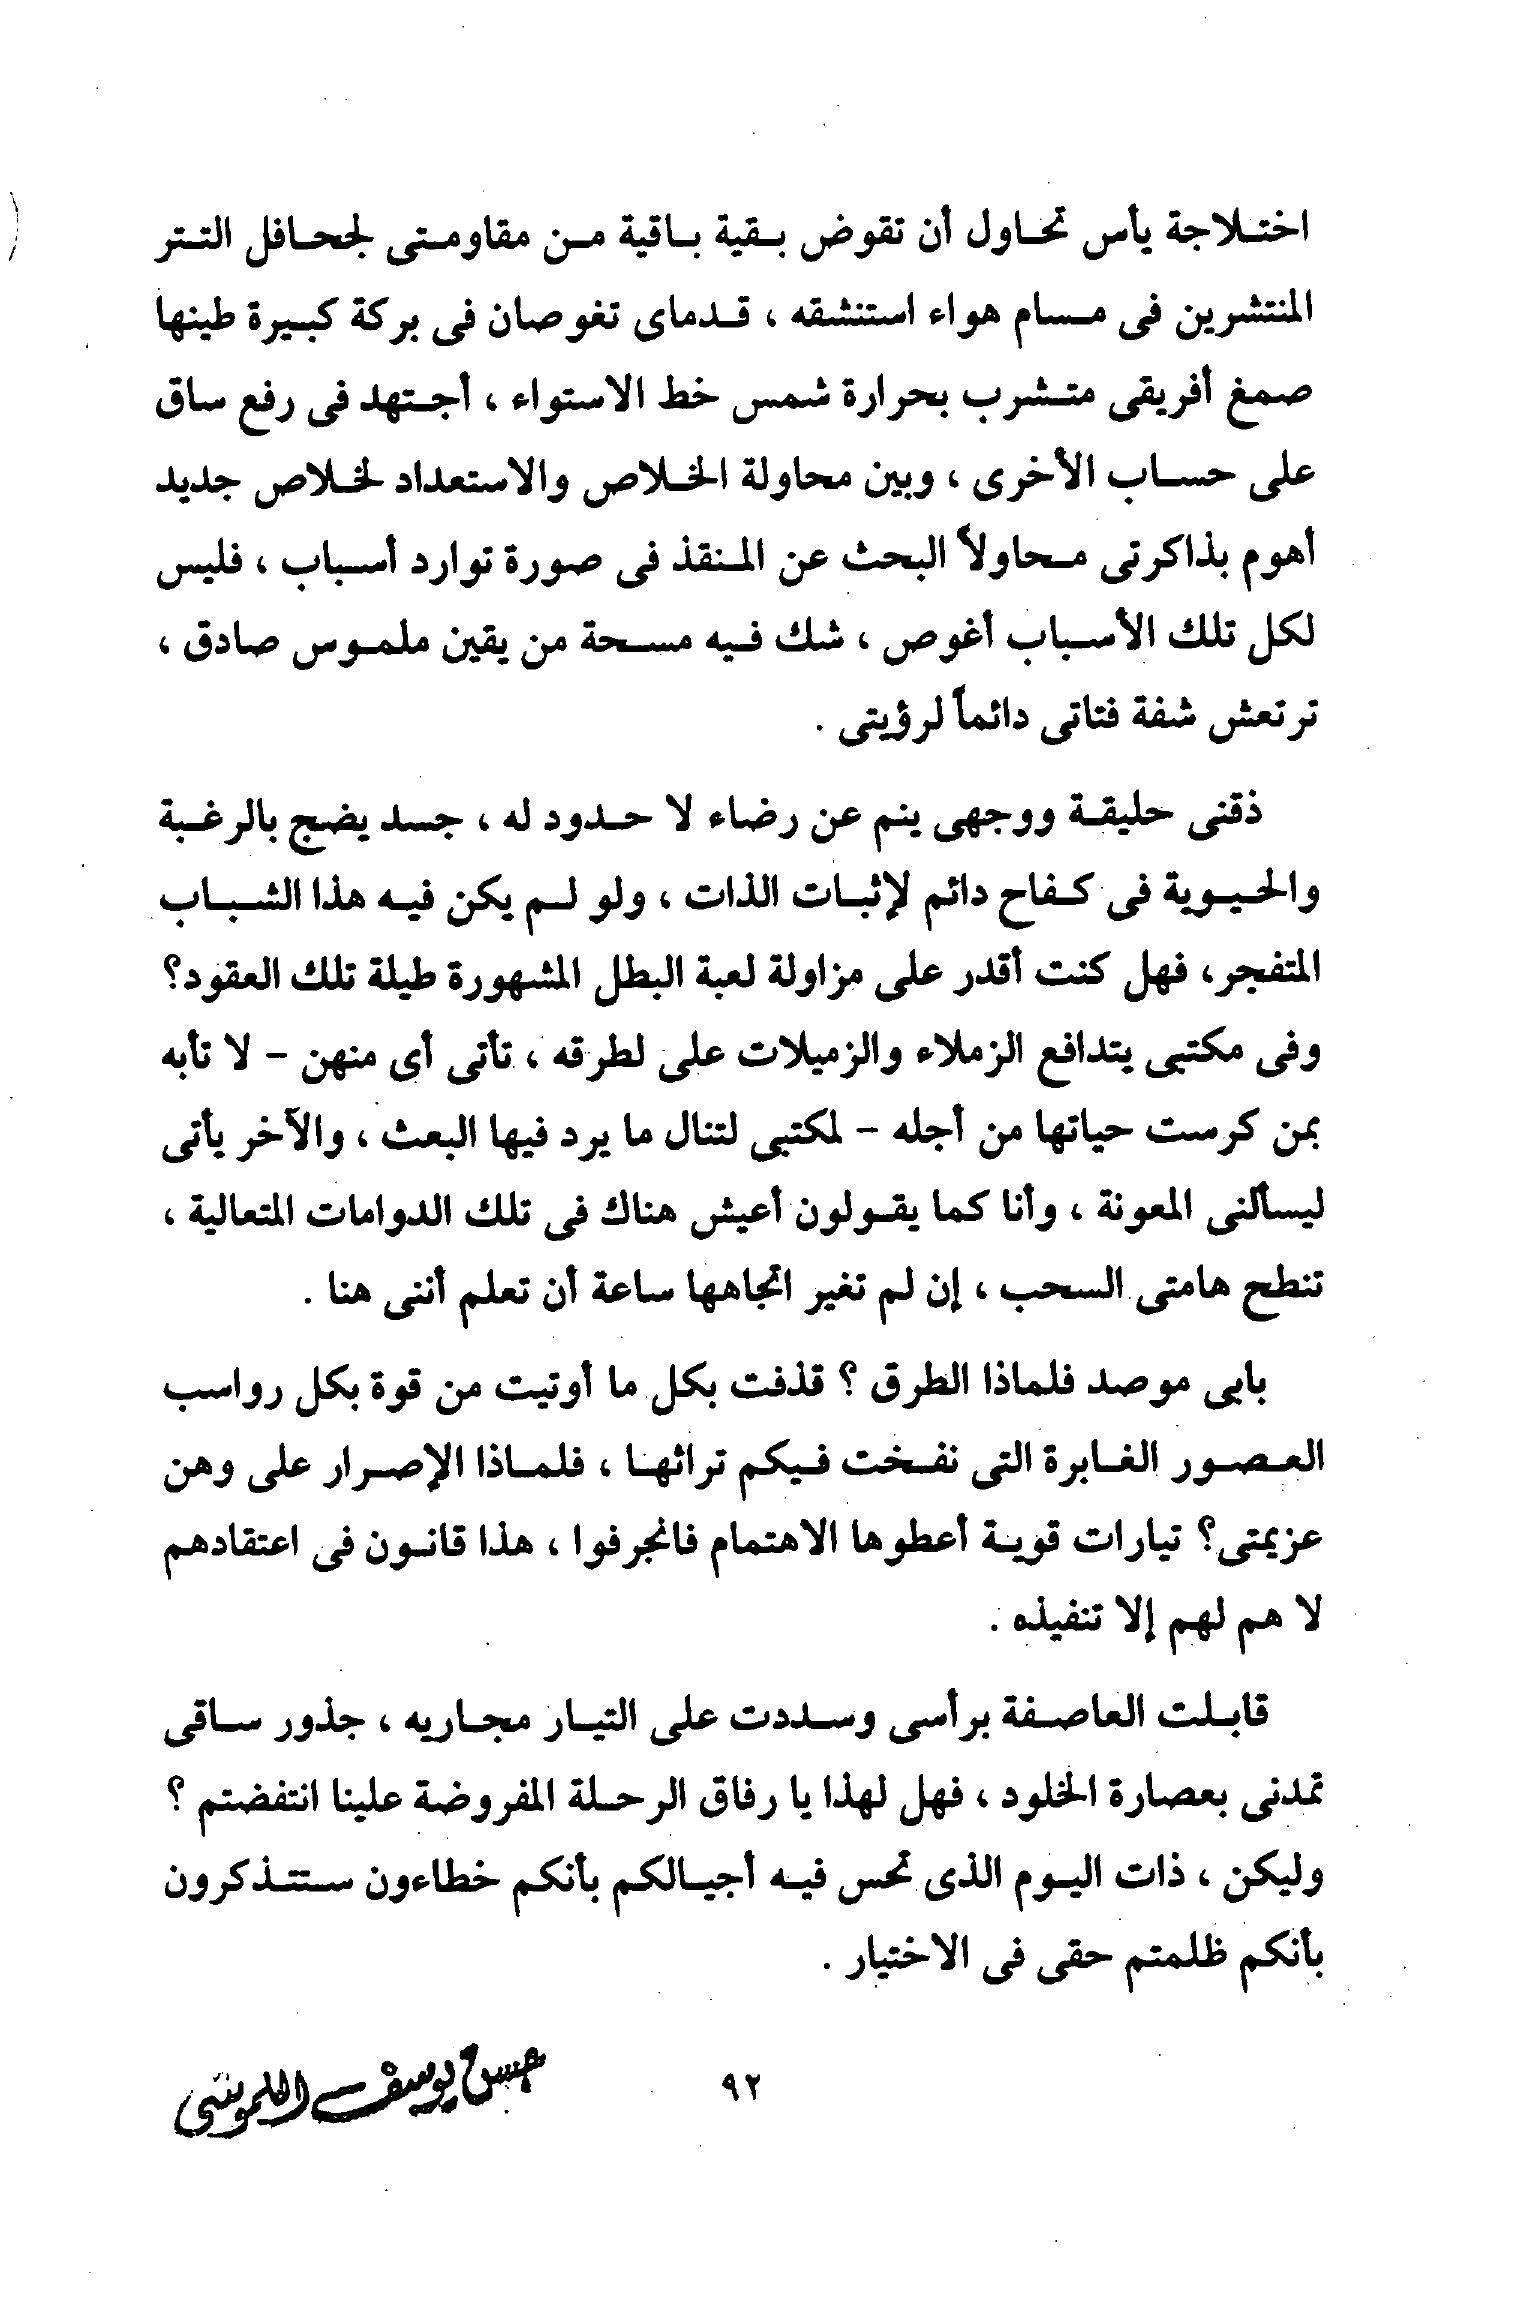 اختلاجة يأس تحاول أن تقوض بقية باقية من مقاومتى لجحافل التتر
المنتشرين فى مسام هواء استنشقه ، قدماى تغوصان فى بركة كبيرة طينها
صمغ أفريقى متشرب بحرارة شمس خط الاستواء ، أجتهد فى رفع ساق
على حساب الأخرى ، وبين محاولة الخلاص والاستعداد لخلاص جديد
أهوم بذاكرتى محاولاً البحث عن المنقذ فى صورة توارد أسباب ، فليس
لكل تلك الأسباب أغوص ، شك فيه مسحة من يقين ملموس صادق ،
ترتعش شفة فتاتى دائماً لرؤيتى .
ذقنى حليقة ووجهى ينم عن رضاء لا حدود له ، جسد يضج بالرغبة
والحيوية فى كفاح دائم لإثبات الذات ، ولو لم يكن فيه هذا الشباب
المتفجر، فهل كنت أقدر على مزاولة لعبة البطل المشهورة طيلة تلك العقود؟
وفى مكتبى يتدافع الزملاء والزميلات على لطرقه ، تأتى أى منهن - لا تأبه
بمن كرست حياتها من أجله - لمكتبى لتنال ما يرد فيها البعث ، والآخر يأتى
ليسألنى المعونة ، وأنا كما يقولون أعيش هناك فى تلك الدوامات المتعالية ،
تنطح هامتى السحب ، إن لم تغير اتجاهها ساعة أن تعلم أننى هنا .
بابى موصد فلماذا الطرق ؟ قذفت بكل ما أوتيت من قوة بكل رواسب
العصور الغابرة التى نفخت فيكم تراثها ، فلماذا الإصرار على وهن
عزيمتى؟ تيارات قوية أعطوها الاهتمام فانجرفوا ، هذا قانون فى اعتقادهم
لا هم لهم إلا تنفيذه .
قابلت العاصفة برأسى وسددت على التيار مجاريه ، جذور ساقى
تمدنى بعصارة الخلود ، فهل لهذا يا رفاق الرحلة المفروضة علينا انتفضتم ؟
وليكن ، ذات اليوم الذى تحس فيه أجيالكم بأنكم خطاءون ستتذكرون
بأنكم ظلمتم حقى فى الاختيار .
٩٢
حسن يوسف